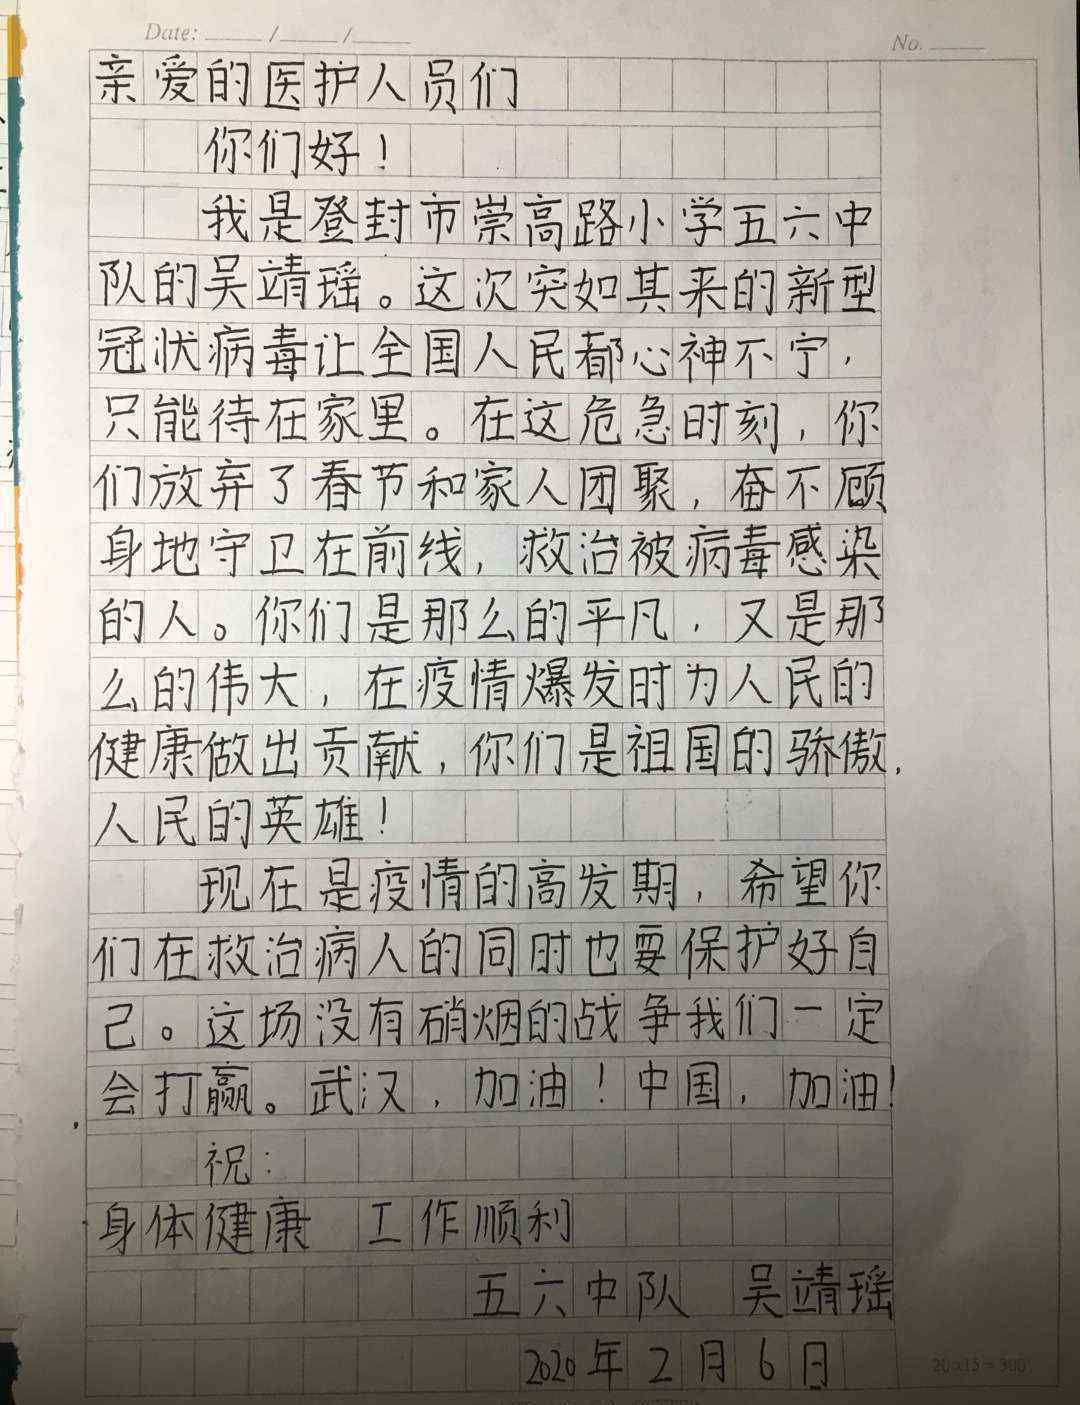 Date: ____/____/____
No. ____
亲爱的医护人员们
你们好！
我是登封市崇高路小学五六中
队的吴靖瑶。这次突如其来的新型
冠状病毒让全国人民都心神不宁，
只能待在家里。在这危急时刻，你
们放弃了春节和家人团聚，奋不顾
身地守卫在前线，救治被病毒感染
的人。你们是那么的平凡，又是那
么的伟大，在疫情爆发时为人民的
健康做出贡献，你们是祖国的骄傲，
人民的英雄！
现在是疫情的高发期，希望你
们在救治病人的同时也要保护好自
己。这场没有硝烟的战争我们一定
会打赢。武汉，加油！中国，加油！
祝：
身体健康 工作顺利
五六中队 吴靖瑶
2020年2月6日
20×15=300